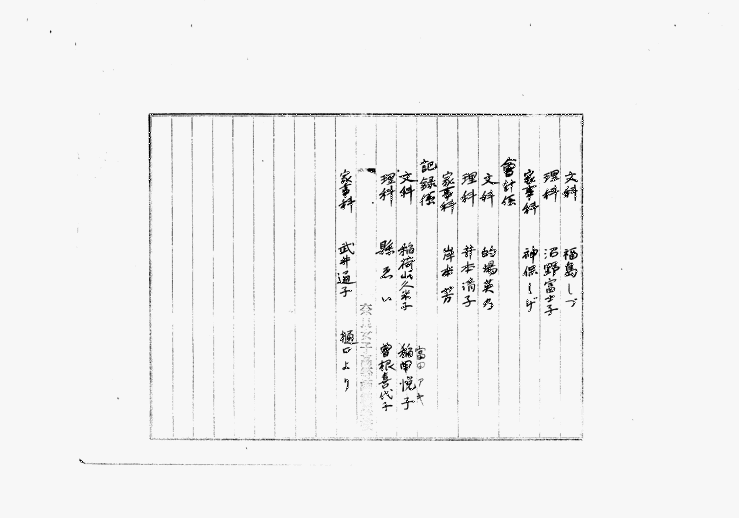 文科 福島しづ
理科 沼野富士子
家事科 神保しげ
會計係
文科 的場英乃
理科 井本清子
家事科 岸本芳
記録係
富田アキ
文科 稲荷山久米子 稲田悦子
理科 縣ゑい 曽根喜代子
家事科 武井通子 樋口より